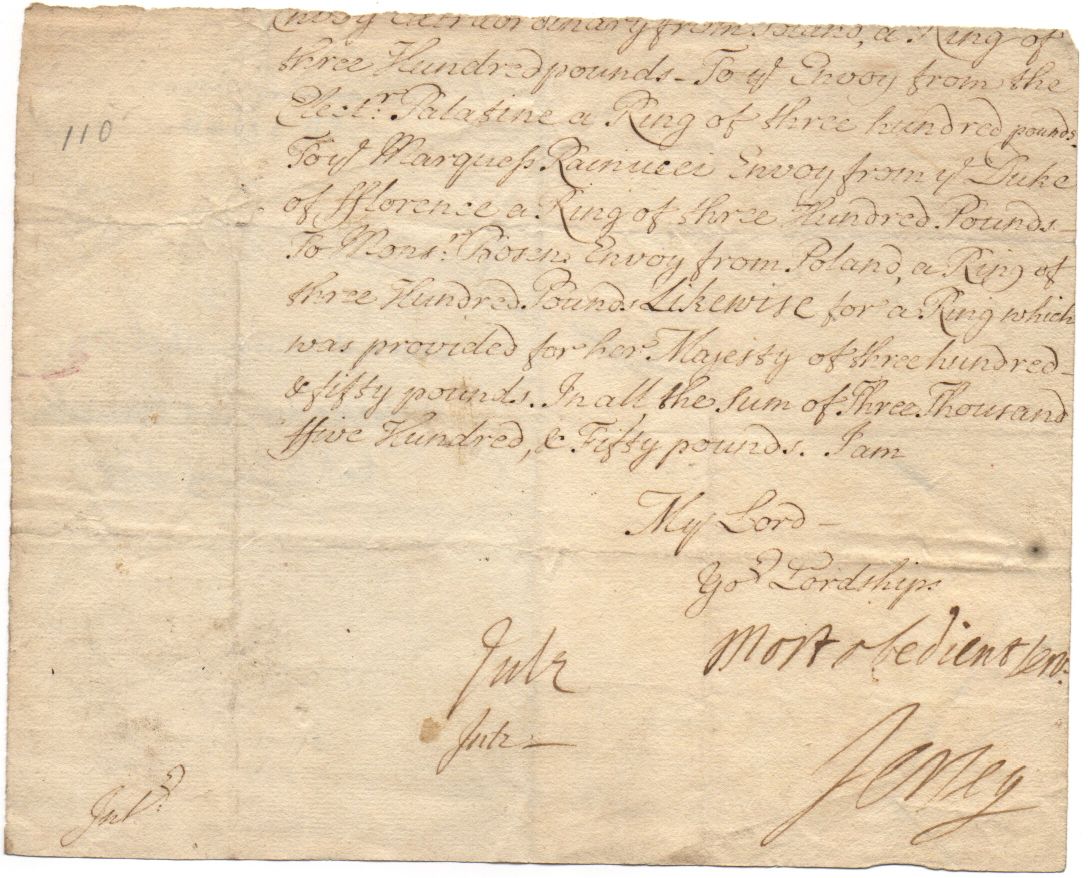 Envoy Extraordinary from Poland, a Ring of
three Hundred pounds - To yͤ Envoy from the
110
Elect.ʳ Palatine a Ring of three hundred pounds.
To yͤ Marquess Rainucci Envoy from yͤ Duke
of fflorence a Ring of three Hundred Pounds
To Mons.ʳ Envoy from Poland, a Ring of
three Hundred Pounds. Likewise for a Ring which
was provided for her Majesty of three hundred -
& fifty pounds. In all, the Sum of Three Thousand
ffive Hundred, & Fifty pounds. I am
My Lord -
Yoʳ Lordships
Most obedient serv.ᵗ
Jersey